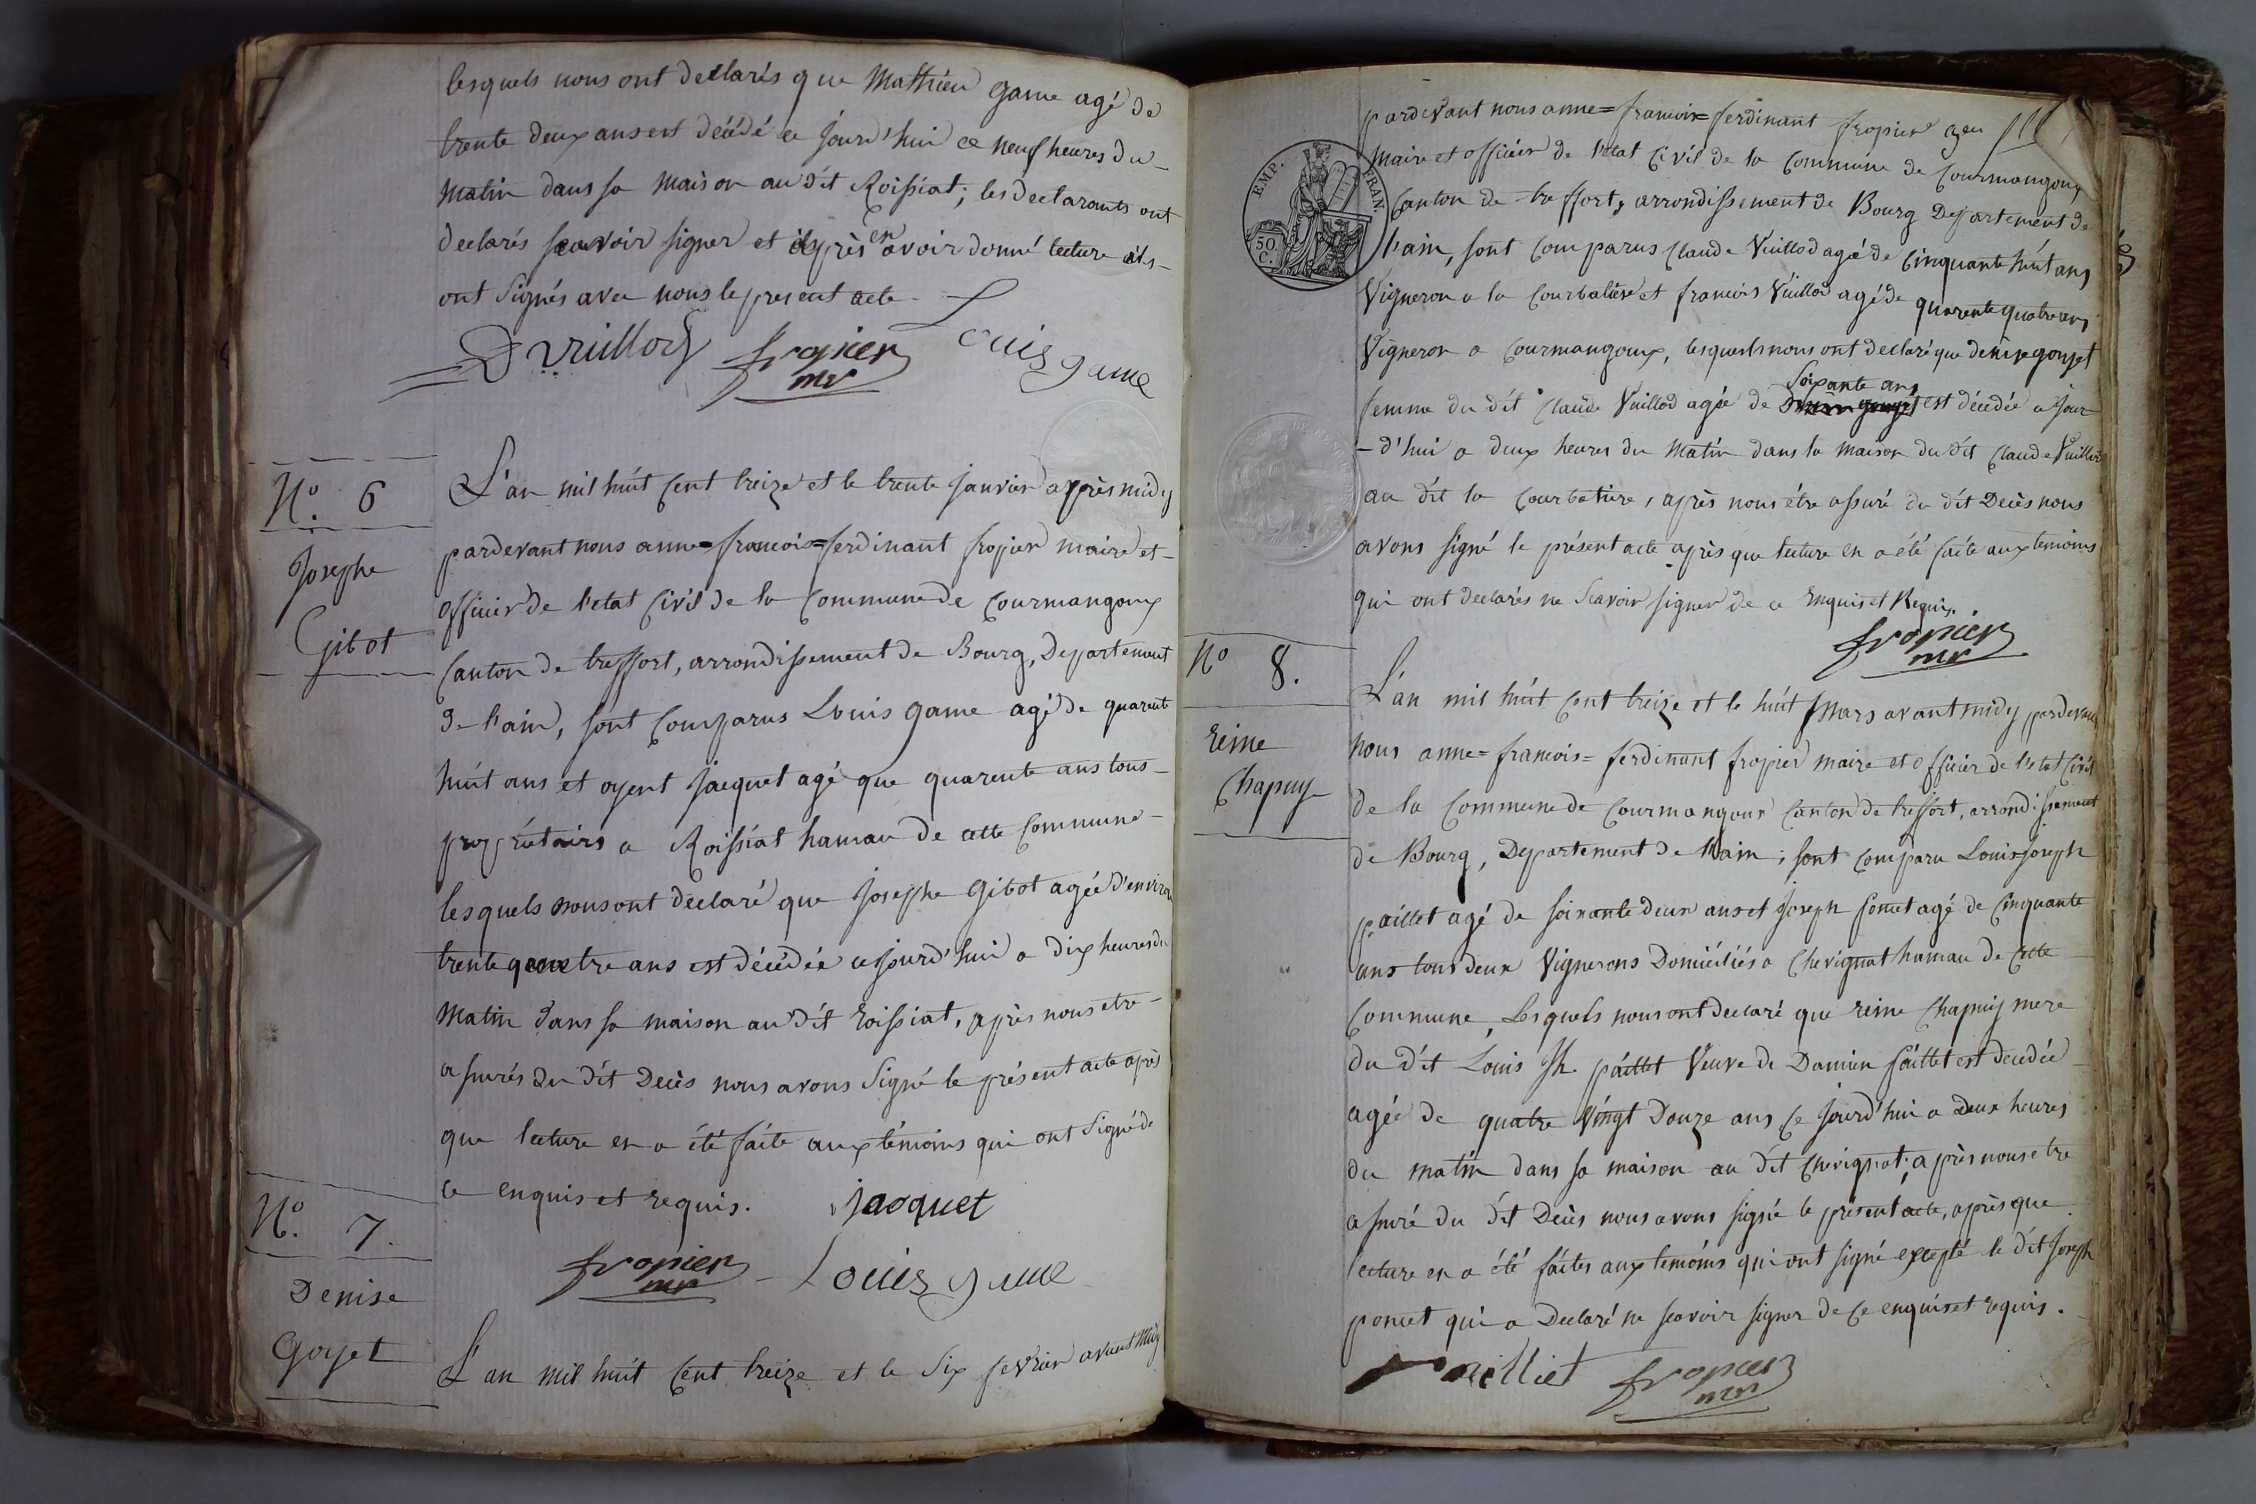 lesquels nous ont declarés que Mathieu game agé de
trente deux ans est décédé ce jourd'hui a neuf heures du
matin dans sa maison au dit Roissiat; les declarants ont
declarés scavoir signer et après en avoir donné lecture ils
ont signés avec nous le present acte
D vuillod fropier Louis game
mr
N° 6
Josephe
Gibot
L'an mil huit cent treize et le trente janvier après midy
pardevant nous anne=francois=ferdinant fropier maire et
officier de l'etat civil de la commune de Courmangoux
canton de treffort, arrondissement de Bourg, Departement
de l'ain, sont comparus Louis game agé de quarente
huit ans et oyent jacquet agé que quarente ans tous
propriétairs a Roissiat hamau de cette commune
lesquels nous ont declaré que Josephe Gibot agée d'environ
trente quatre ans est décédée ce jourd'hui a dix heures du
matin dans sa maison au dit roissiat, après nous etre
assurés du dit Decès nous avons signé le présent acte après
que lecture en a été faite aux témoins qui ont signé de
ce enquis et requis. jacquet
fropier Louis game
mr
N° 7.
Denise
Goyet
L'an mil huit cent treize et le six fevrier avant midy
pardevant nous anne=francois=ferdinant fropier
maire et officier de l'etat civil de la commune de Courmangoux
canton de treffort, arrondissement de Bourg Departement de
l'ain, sont comparus Claude Vuillod agé de cinquante huit ans
Vigneron a la Courbatiere et francois Vuillod agé de quarente quatre ans
Vigneron a Courmangoux, lesquels nous ont declaré que denise goyet
femme du dit Claude Vuillod agée de soixante ans est décédée ce jour
-d'hui a deux heures du matin dans la maison du dit Claude Vuillod
au dit la Courbatiere, après nous être assuré du dit Decès nous
avons signé le présent acte après que lecture en a été faite aux temoins
qui ont declarés ne scavoir signer de ce enquis et Requis.
fropier
mr
EMP. FRAN.
50 C.
N° 8.
reine
Chapuy
L'an mil huit cent treize et le huit mars avant midy pardevant
nous anne=francois=ferdinant fropier maire et officier de l'etat civil
de la commune de Courmangoux canton de treffort, arrondissement
de Bourg, Departement de l'ain; sont comparu Louis joseph
paillet agé de soixante deux ans et joseph poncet agé de cinquante
ans tous deux Vignerons Domiciliés a Chevignat hamau de cette
commune, Lesquels nous ont declaré que reine Chapuy mere
du dit Louis Jh. paillet Veuve de Damien paillet est decedée
agée de quatre vingt Douze ans ce jourd'hui a Deux heures
du matin dans sa maison au dit chevignat, après nous etre
assuré du dit Decès nous avons signé le présent acte, après que
lecture en a été faites aux temoins qui ont signé excepté le dit Joseph
poncet qui a Declaré ne scavoir signer de ce enquis et requis.
fropier
mr